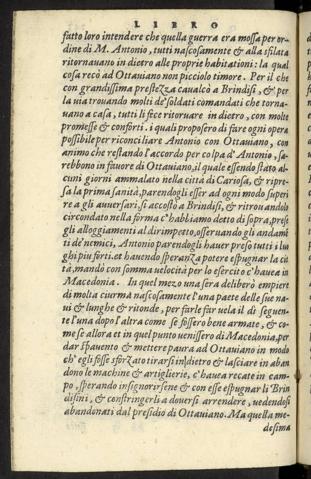 LIBRO
fatto loro intendere che quella guerra era mossa per or-
dine di M. Antonio, tutti nascosamente & alla sfilata
ritornauano in dietro alle proprie habitationi: la qual
cosa recò ad Ottauiano non picciolo timore. Per il che
con grandissima prestezza caualcò a Brindisi, & per
la uia trouando molti de' soldati comandati che torna-
uano a casa, tutti li fece ritornare in dietro, con molte
promesse & conforti. i quali proposero di fare ogni opera
possibile per riconciliare Antonio con Ottauiano, con
animo che restando l'accordo per colpa d'Antonio, sa-
rebbono in fauore di Ottauiano, il quale essendo stato al-
cuni giorni ammalato nella città di Cariosa, & ripre-
sa la prima sanità, parendogli esser ad ogni modo superi
re a gli auuersari, si accostò a Brindisi, & ritrouandolo
circondato nella forma c'habbiamo detto di sopra, prese
gli alloggiamenti al dirimpetto, osseruando gli andamen
ti de' nemici, Antonio parendogli hauer preso tutti i luo
ghi piu forti, et hauendo speranza potere espugnar la cit
tà, mandò con somma uelocità per lo esercito c'hauea in
Macedonia. In quel mezo una sera deliberò empiere
di molta ciurma nascosamente l'una parte delle sue na-
ui & lunghe & ritonde, per farle far uela il dì seguen-
te l'una dopo l'altra come se fossero bene armate, & co-
me se allora et in quel punto uenissero di Macedonia, per
dar spauento & mettere paura ad Ottauiano in modo
ch' egli fosse sforzato tirarsi in dietro & lasciare in aban
dono le machine & artiglierie, c'hauea recate in cam-
po, sperando insignorirsene & con esse espugnar li Brin
disini, & constringerli a douersi arrendere, uedendosi
abandonati dal presidio di Ottauiano. Ma quella me-
desima